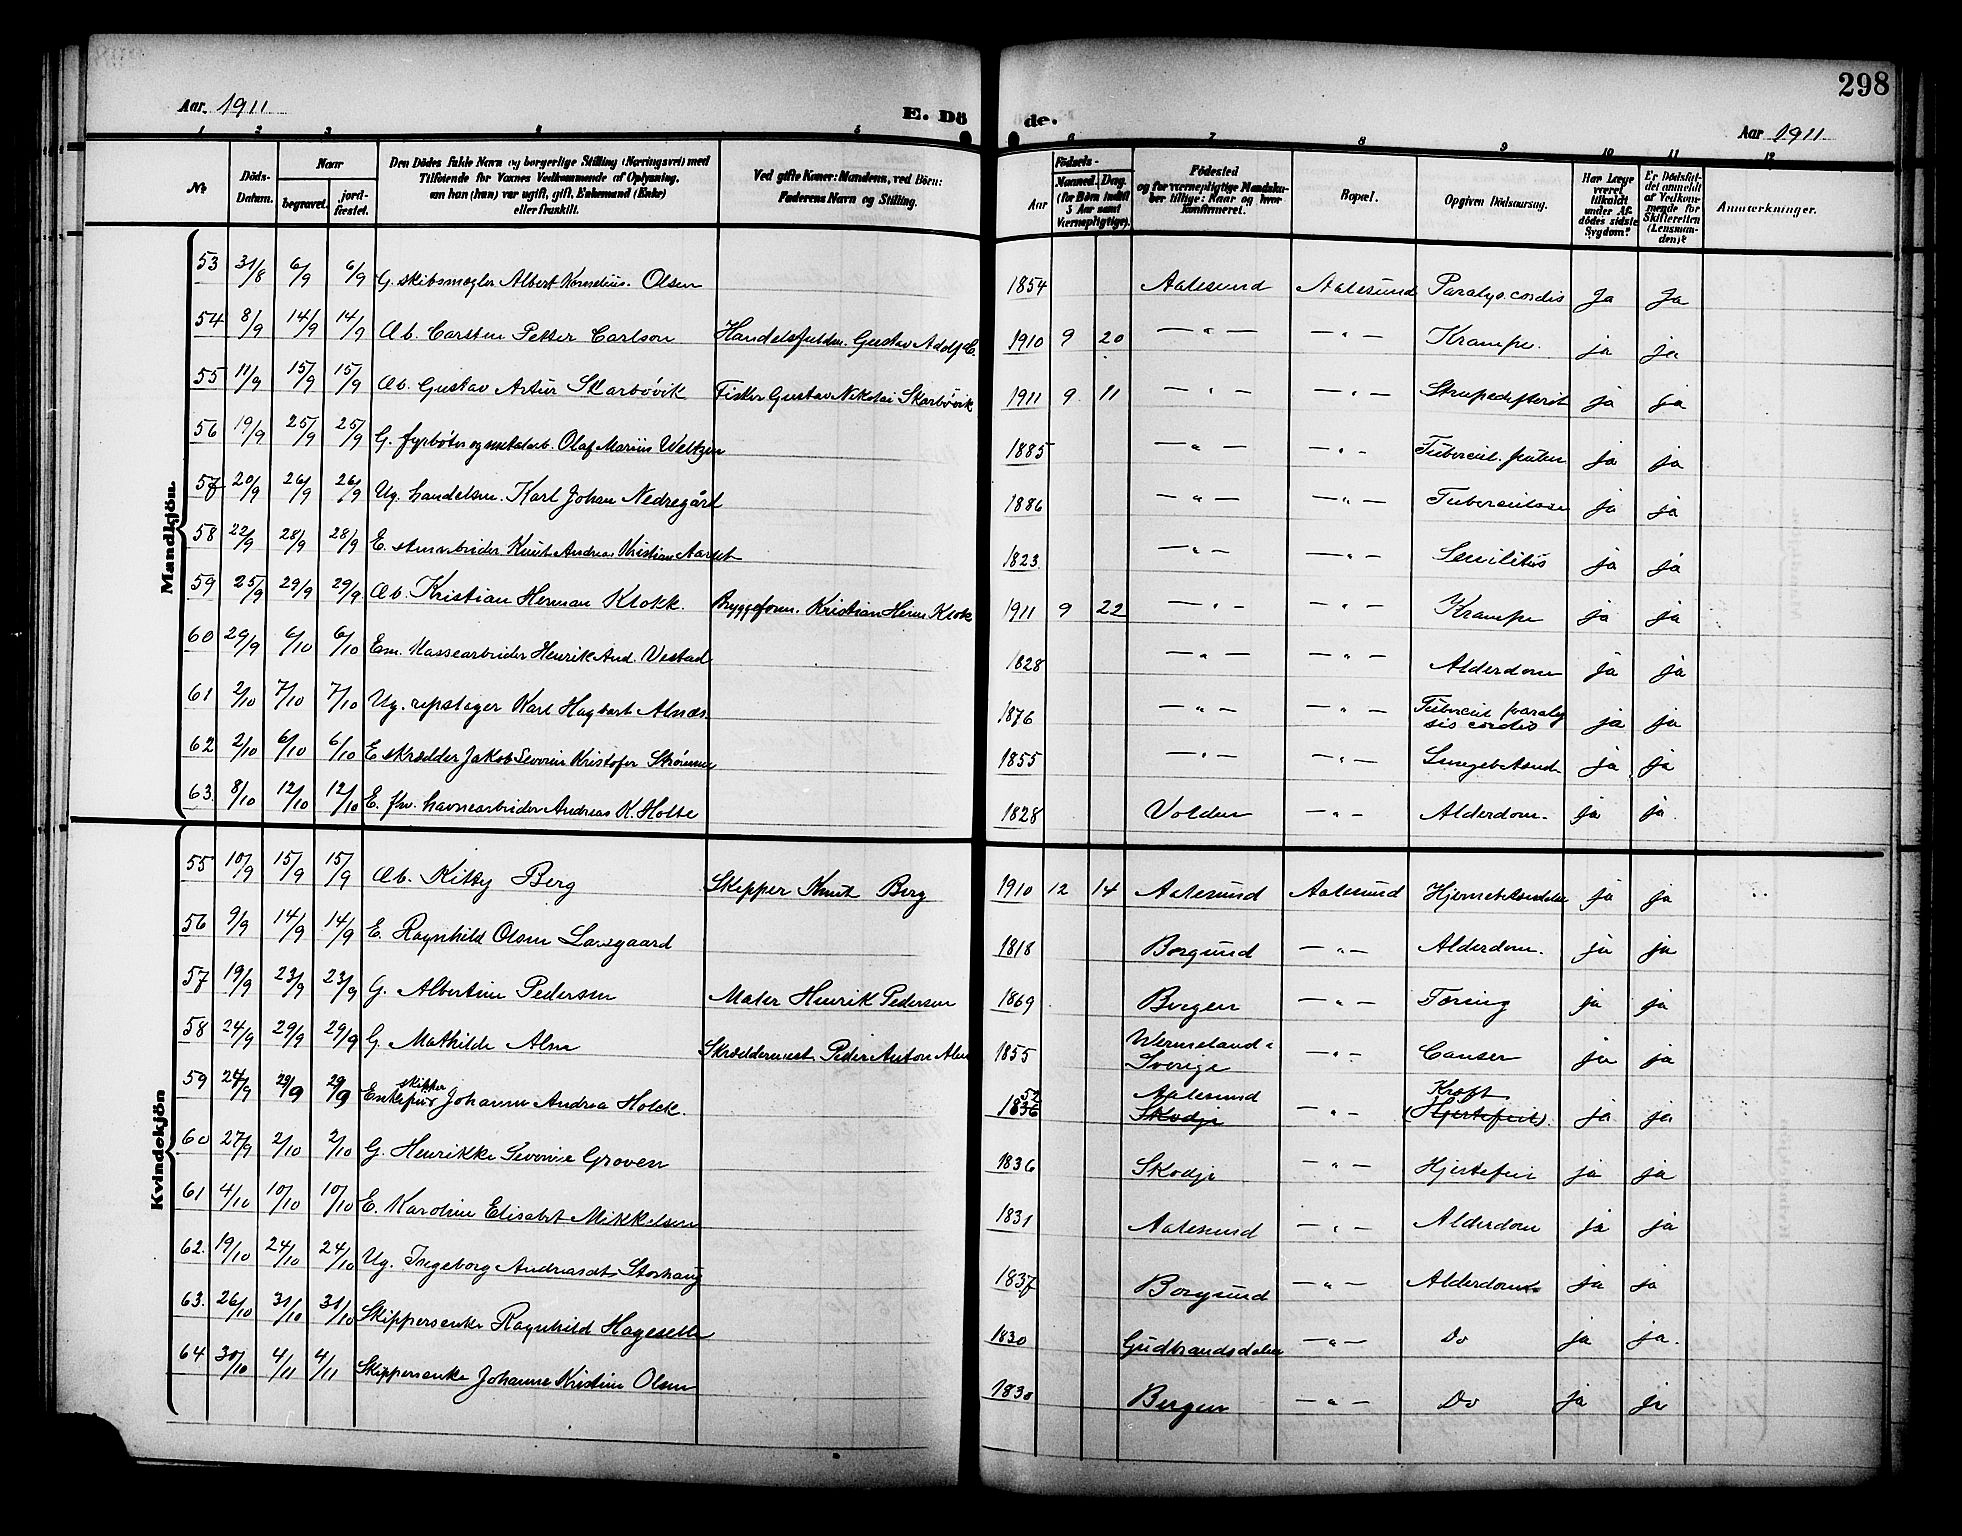 298
Aar. 1911
E. Dö de.
Aar 1911
1 2 3 4 5 6 7 8 9 10 11 12
No
Döds-Datum.
Naar
begravet.
jord-fæstet.
Den Dödes fulde Navn og borgerlige Stilling (Næringsvei) med
Tilföiende for Voxnes Vedkommende af Oplysning,
om han (hun) var ugift, gift, Enkemand (Enke)
eller fraskilt.
Ved gifte Koner: Mandens, ved Börn:
Faderens Navn og Stilling.
Födsels-
Aar
Maaned. Dag.
(for Börn indtil
3 Aar samt
Værnepligtige).
Födested
og for værnepligtige Mandska-
ber tillige: Naar og hvor
konfirmeret.
Bopæl.
Opgiven Dödsaarsag.
Har Læge
været
tilkaldt
under Af-
dödes sidste
Sygdom?
Er Dödsfal-
det anmeldt
af Vedkom-
mende for
Skifteretten
(Lensman-
den)?
Anmærkninger.
Mandkjön.
53 31/8 6/9 6/9 G. skibsmægler Albert Kornelius Olsen 1854 Aalesund Aalesund Paralys. cordis Ja Ja
54 8/9 14/9 14/9 Æb. Carsten Petter Carlson Handelsfuldm. Gustav Adolf C. 1910 9 20 — " — — " — Krampe. ja ja
55 11/9 15/9 15/9 Æb. Gustav Artur Skarbövik Fisker Gustav Nikolai Skarbövik 1911 9 11 — " — — " — Strupedifterit ja ja
56 19/9 25/9 25/9 G. fyrböter og metalarb. Olaf Marius Weltzen 1885 — " — — " — Tubercul. ja ja
57 20/9 26/9 26/9 Ug. handelsm. Karl Johan Nedregård 1886 — " — — " — Tuberculose ja ja
58 22/9 28/9 28/9 E. Knut Andreas Kristian Aarset 1823 — " — — " — Senilitus ja ja
59 25/9 29/9 29/9 Æb. Kristian Herman Klokk. Bryggeform. Kristian Herm. Klokk 1911 9 22 — " — — " — Krampe ja ja
60 29/9 6/10 6/10 Em. Kassearbeider Henrik And. Vestad 1828 — " — — " — Alderdom ja ja
61 2/10 7/10 7/10 Ug. repslager Karl Hagbart Alnæs. 1876 — " — — " — Tubercul paraly
sis cordis ja ja
62 2/10 6/10 6/10 E. skrædder Jakob Severin Kristofer Strömme 1855 — " — — " — ja ja
63. 8/10 12/10 12/10 E. fhv. havnearbeider Andreas K. Holte 1828 Volden — " — Alderdom. ja ja.
Kvindekjön
55 10/9 15/9 15/9 Æb. Kitty Berg Skipper Knut Berg 1910 12 14 Aalesund Aalesund ja ja
56 9/9 14/9 14/9 E. Ragnhild Olsen Larsgaard 1818 Borgund — " — Alderdom. ja ja
57 19/9 23/9 23/9 G. Albertine Pedersen Maler Henrik Pedersen 1869 Bergen — " — Tæring ja ja
58 24/9 29/9 29/9 G. Mathilde Alm Skræddermest. Peder Anton Alm 1855 Wermeland i
Sverige — " — Cancer ja ja
59 24/9 29/9 29/9 Enkefru skipper Johanne Andrea Holck. 1836 52 Aalesund
Skodje — " — Kræft
(Hjertefeil). ja ja
60 27/9 2/10 2/10 G. Henrikke Severine Groven 1836 Skodje — " — Hjertefeil ja ja
61 4/10 10/10 10/10 E. Karoline Elisabet Mikkelsen 1831 Aalesund — " — Alderdom ja ja
62. 19/10 24/10 24/10 Ug. Ingeborg Andreasdt. Storhaug 1837 Borgund — " — Alderdom ja ja
63. 26/10 31/10 31/10 Skippersenke Ragnhild Hagesæther 1830 Gudbrandsdalen — " — Do ja ja.
64 30/10 4/11 4/11 Skippersenke Johanne Kristine Olsen 1830 Bergen — " — Do ja ja